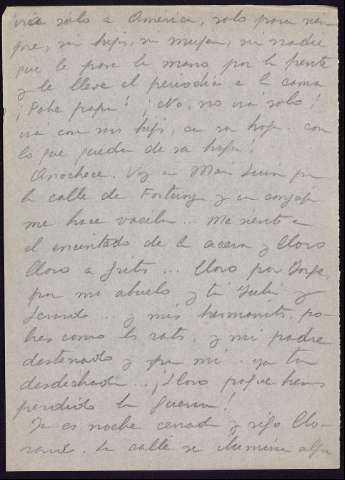 irá solo a América, solo para siem
pre, sin hijos, sin mujer, sin nadie
que le pase la mano por la frente
y le lleve el periódico a la cama
¡Pobre papá! ¡No, no irá solo!
irá con sus hijos, con su hija. con
lo que queda de su hija!
Anochece. Voy a Man por
la calle de Fortuny y un
me hace vacilar... Me siento en
el encintado de la acera y lloro
lloro a gritos... lloro por
por mi abuelo y tía y
y mis hermanitos po-
bres como las rats, y mi padre
desterrado y por mí ya tan
desdichada... ¡Lloro porque hemos
perdido la guerra!
Ya es noche cerrada y sigo llo-
rando. La calle se ilumina algo